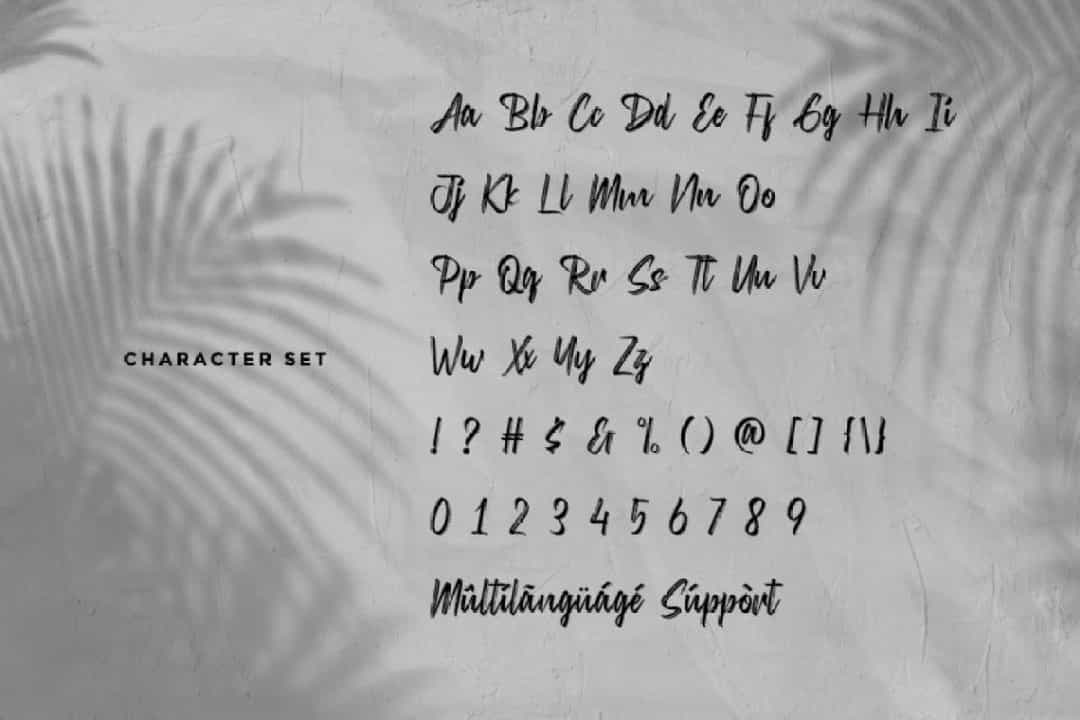 Aa Bb Cc Dd Ee Ff Gg Hh Ii
Jj Kk Ll Mm Nn Oo
Pp Qq Rr Ss Tt Uu Vv
CHARACTER SET
Ww Xx Yy Zz
! ? # $ & % ( ) @ [ ] { \ }
0 1 2 3 4 5 6 7 8 9
Mûltilãngüágé Súppòrt